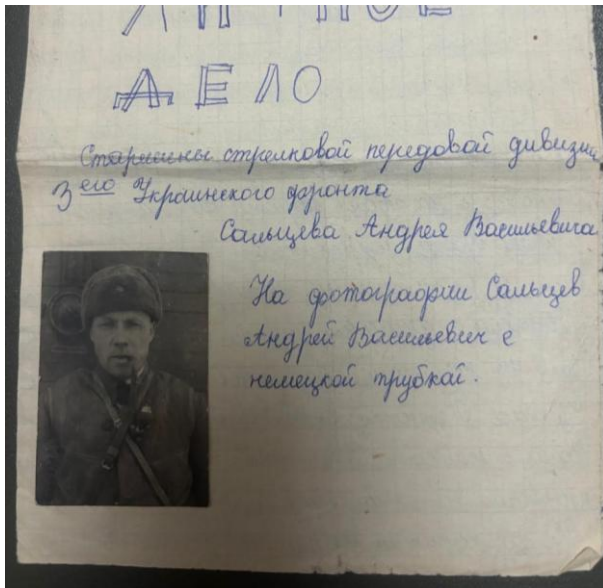 ЛИЧНОЕ
ДЕЛО
Старшины стрелковой передовой дивизии
3его Украинского фронта
Сальцева Андрея Васильевича
На фотографии Сальцев
Андрей Васильевич с
немецкой трубкой.